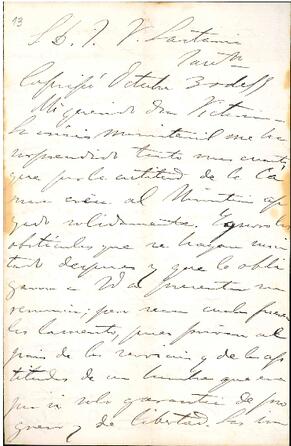 13
S. D. J. V. Lastarria
Octubre 3 de
Mi querido Don Victorino
La crisis ministerial me ha
sorprendido tanto mas cuanto
que por la actitud de la Cá
mara creia al Ministerio apo
yado solidamente. Ignoro los
obstáculos que se hayan susci
tado despues y que lo obli
garon a Ud a presentar su
renuncia, pero sean cuales fueren
las lamento, pues privan al
pais de los servicios y de las ap
titudes de un hombre que era
por si solo garantia de pro
greso y de libertad. Sus